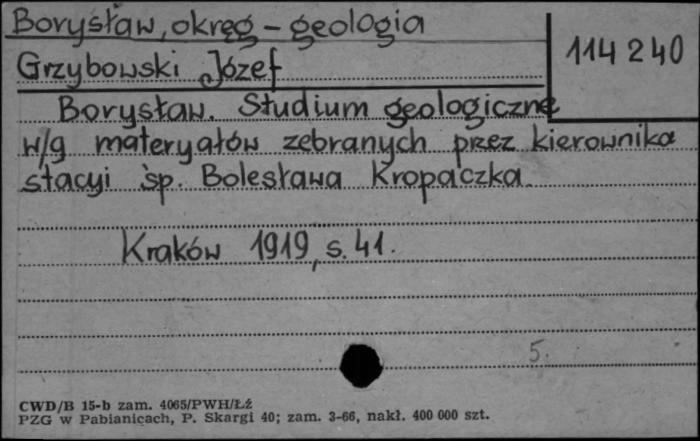 Borysław, okręg - geologia
114 240
Grzybowski Józef
Borysław. Studium geologiczne
w/g materyałów zebranych przez kierownika
stacyi śp. Bolesława Kropaczka.
Kraków 1919, s. 41.
5.
CWD/B 15-b zam. 4065/PWH/Łź
PZG w Pabianicach, P. Skargi 40; zam. 3-66, nakł. 400 000 szt.